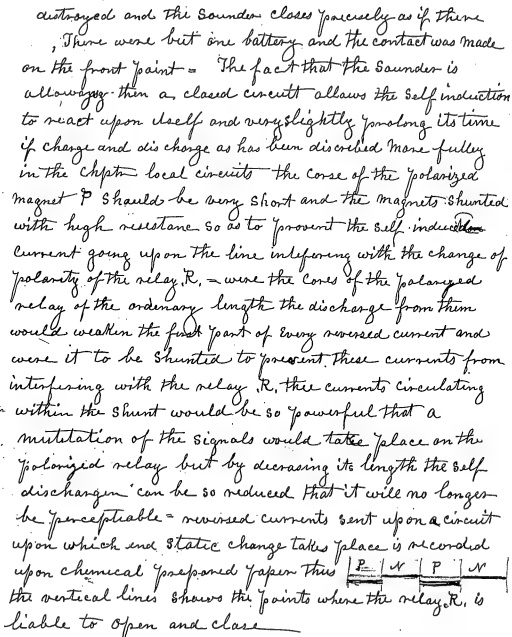 distroyed and the sounder closes precisely as if there
, There were but one battery and the contact was made
on the front point = The fact that the sounder is
allowing then a closed circuit allows the self induction
to react upon itself and very slightly prolong its time
if charge and discharge as has been discribed more fulley
in the chptr local circuits the corse of the polarized
magnet P should be very short and the magnets shunted
with high resistane so as to prevent the self induction
current going upon the line intefering with the change of
polarity of the relay, R, = were the cores of the polarized
relay of the ordinary length the discharge from them
would weaken the first part of every reversed current and
were it to be shunted to prevent these currents from
interfering with the relay R, thee currents circulating
within the shunt would be so powerful that a
mutilation of the signals would take place on the
polarizid relay but by decrasing its length the self
dischargen can be so reduced that it will no longer
be perceptiable = reversed currents sent upon a circuit
upon which end static change takes place is recorded
upon chemical prepared paper thus P N P N
the vertical lines shows the points where the relay, R, is
liable to open and close